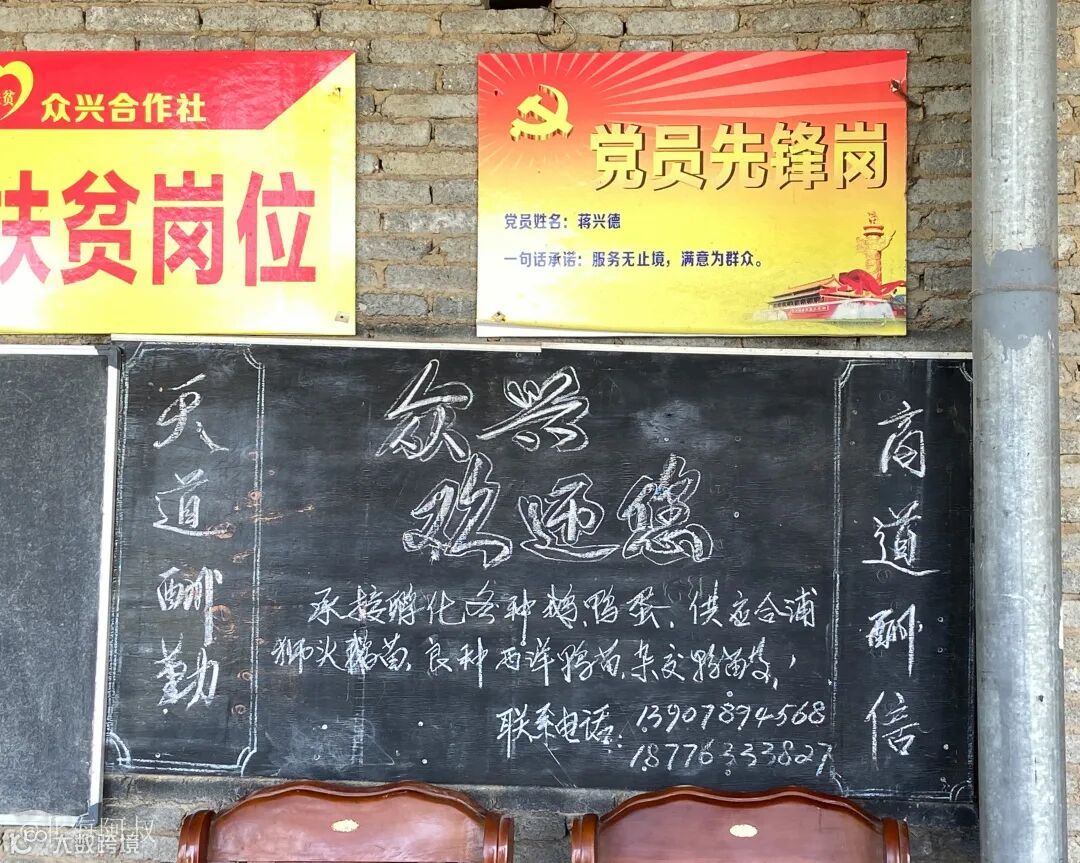 贫
众兴合作社
扶贫岗位
党员先锋岗
党员姓名：蒋兴德
一句话承诺：服务无止境，满意为群众。
天道酬勤
众兴
欢迎您
承接孵化各种鹅、鸭蛋、供应合浦
狮头鹅苗、良种西洋鸭苗、杂交鸭苗等，
联系电话：13907894568
18776333827
商道酬信
大数跨境